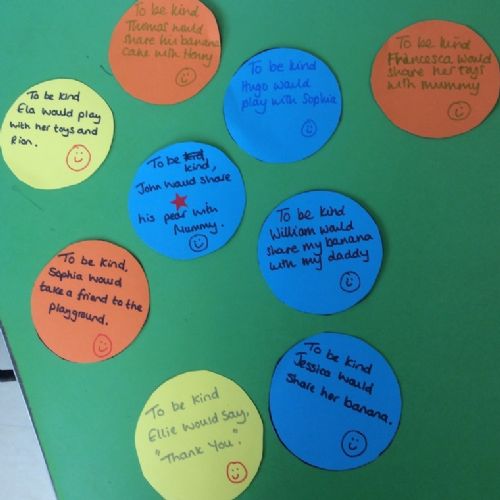 To be kind
Thomas would
share his banana
cake with Henry
To be kind
Hugo would
play with Sophia
To be kind
Francesca would
share her toys
with mummy
To be kind
Ela would play
with her toys and
Rion.
To be kind,
kind,
John would share
his pear with
Mummy.
To be kind
William would
share my banana
with my daddy
To be kind.
Sophia would
take a friend to the
playground.
To be kind
Jessica would
share her banana.
To be kind
Ellie would say,
"Thank You".